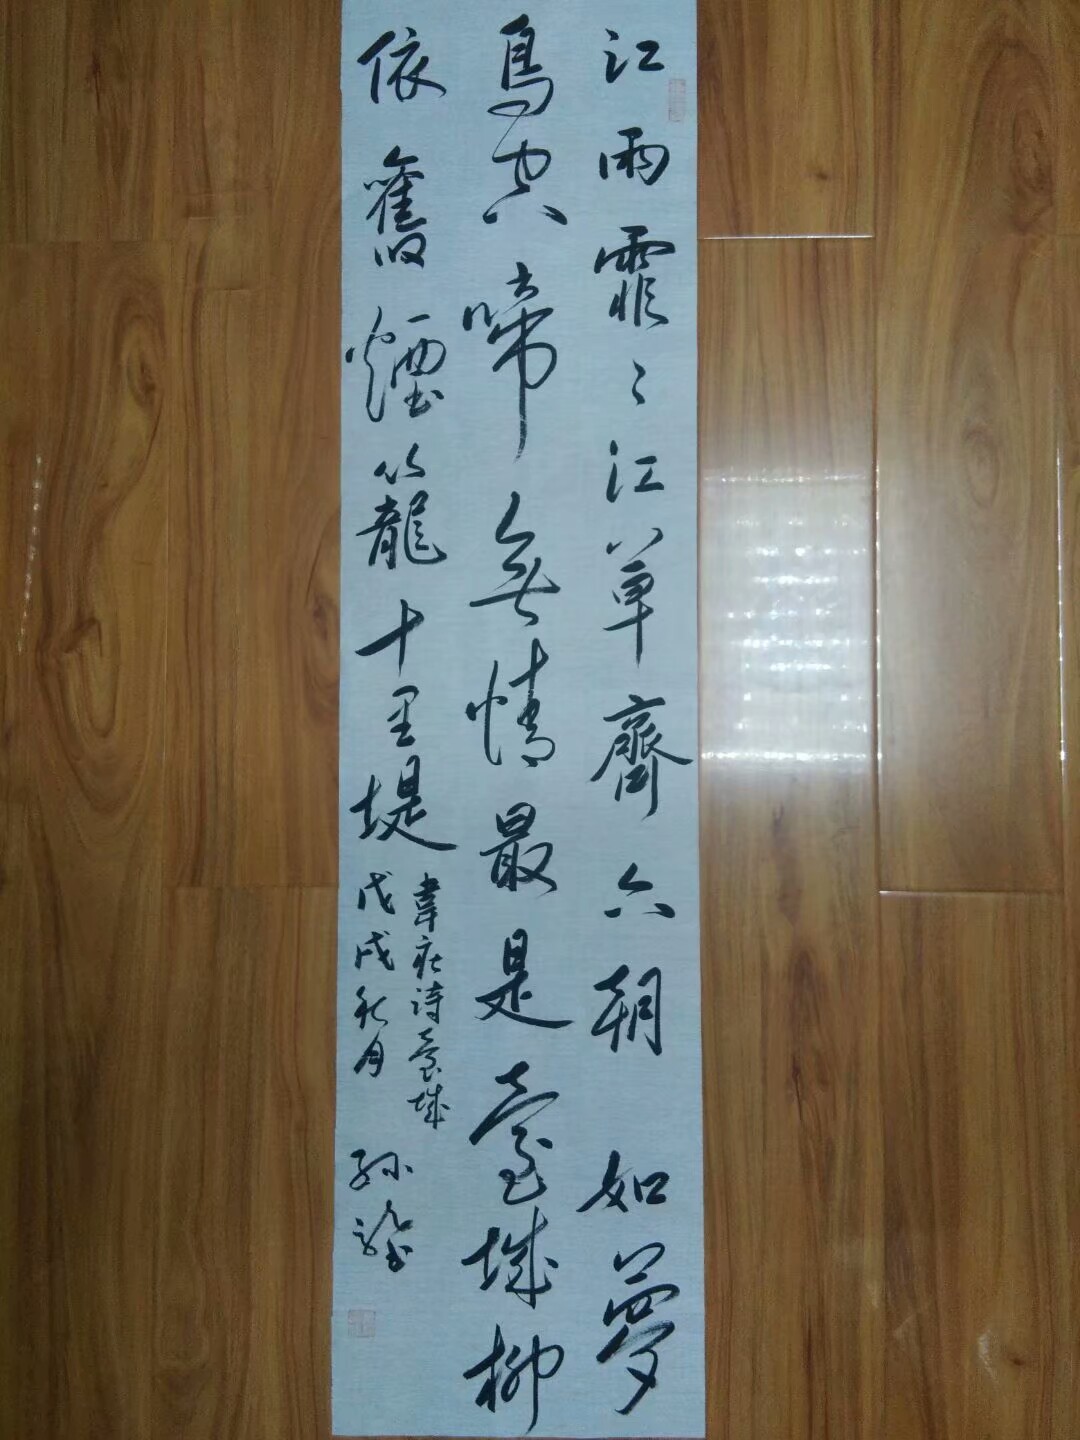 江雨霏〻江草齊六朝如夢
鳥空啼無情最是臺城柳
依舊煙籠十里堤
韋莊詩臺城
戊戌秋月
孫